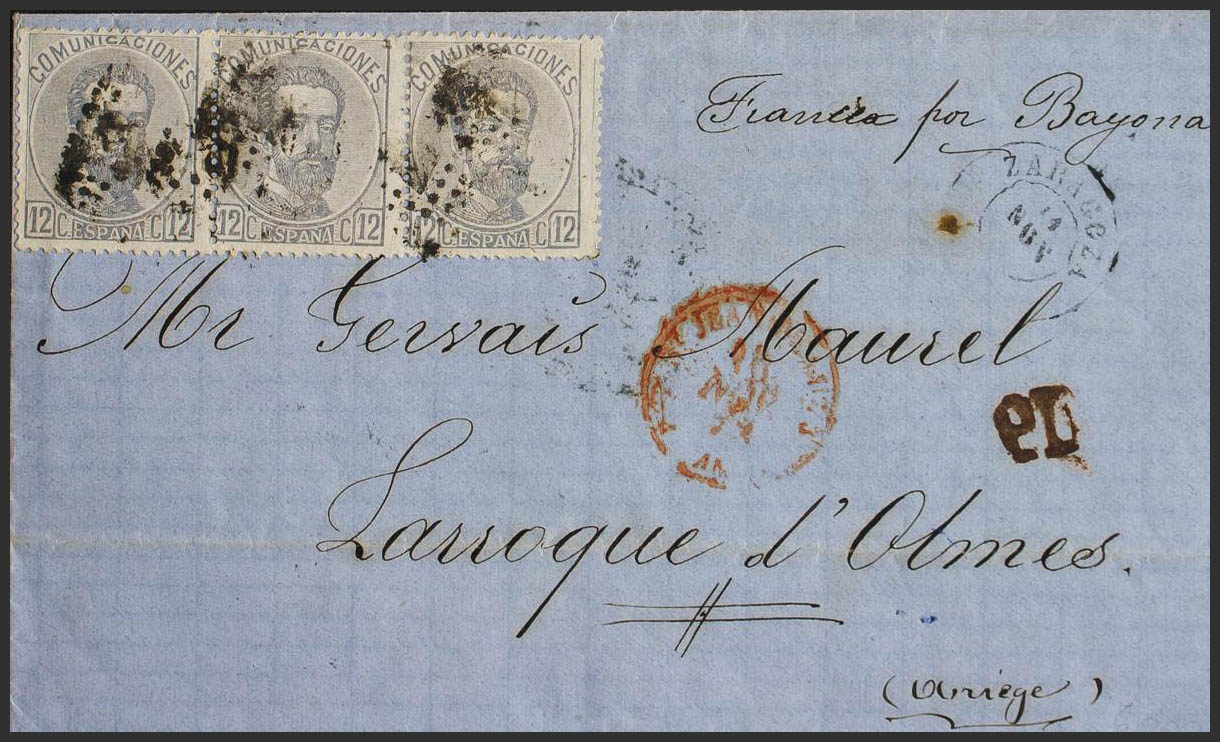 COMUNICACIONES COMUNICACIONES COMUNICACIONES
12 C. ESPAÑA C 12 12 C. ESPAÑA C 12 12 C. ESPAÑA C 12
Francia por Bayona
ZARAGOZA
14
NOV
Mr Gervais Maurel
PD
Larroque d'Olmes.
(Ariège)